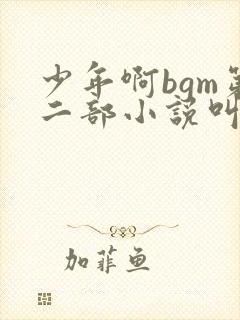 少年啊bgm第
二部小说叫
加菲鱼